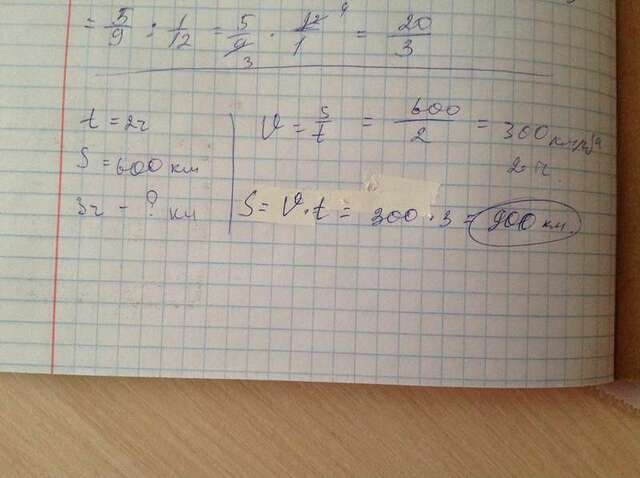 = 5/9 : 1/12 = 5/9 3 · 12/1 4 = 20/3
t = 2ч
S = 600 км
3ч - ? км
V = S/t = 600/2 = 300 км/ч
2ч.
S = V · t = 300 · 3 = 900 км.